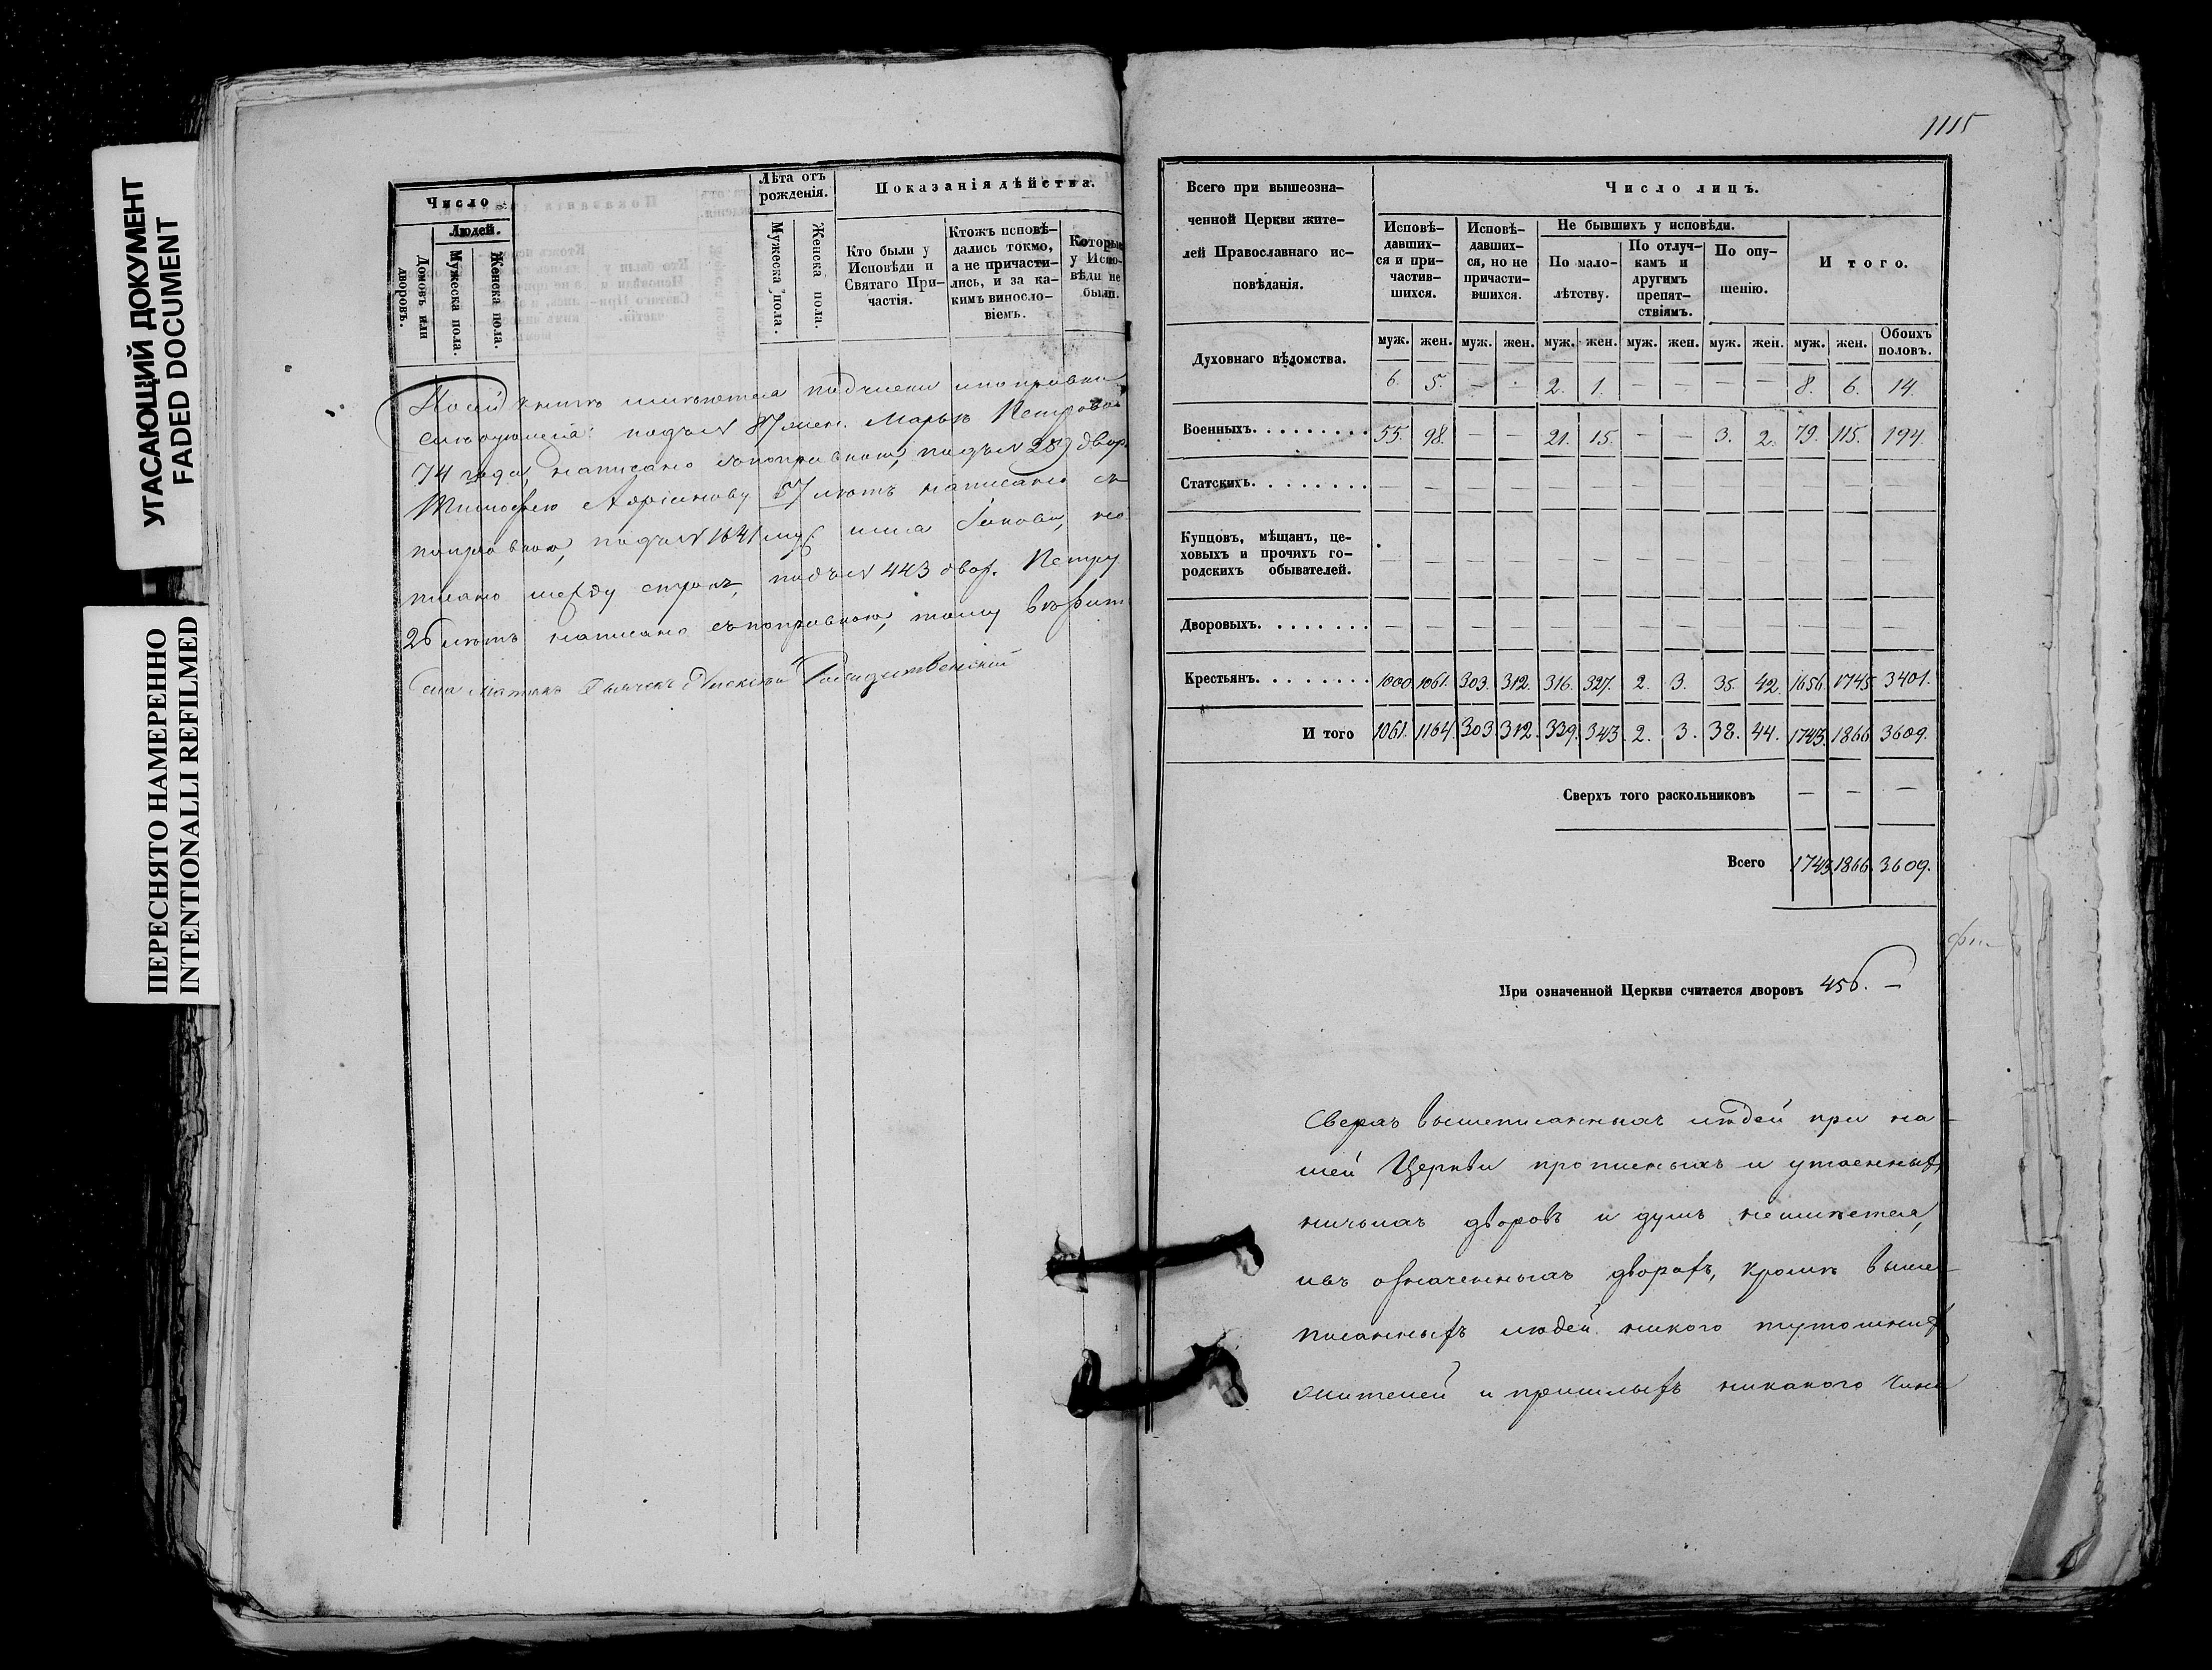 УГАСАЮЩИЙ ДОКУМЕНТ
FADED DOCUMENT
ПЕРЕСНЯТО НАМЕРЕННО
INTENTIONALLI REFILMED
Число
Людей.
Домовъ или дворовъ.
Мужеска пола.
Женска пола.
Лѣта отъ рожденія.
Мужеска пола.
Женска пола.
Показанія дѣйства.
Кто были у
Исповѣди и
Святаго При-
частія.
Ктожъ исповѣ-
дались токмо,
а не причасти-
лись, и за ка-
кимъ винослo-
віемъ.
Которые
у Испо-
вѣди не
были.
подчистки и поправки
подъ № 87 жен. Марьѣ Петровой
74 года, написано съ поправкою, подъ № 289 двор.
57 лѣтъ написано съ
поправкою, подъ № 1641 муж. на-
писано между строкъ, подъ № 443 двор. Петру
26 лѣтъ написано съ поправкою, тому
1115
Всего при вышеозна-
ченной Церкви жите-
лей Православнаго ис-
повѣданія.
Число лицъ.
Исповѣ-
давших-
ся и при-
частив-
шихся.
Исповѣ-
давших-
ся, но не
причасти-
вшихся.
Не бывшихъ у исповѣди.
По мало-
лѣтству.
По отлуч-
камъ и
другимъ
препят-
ствіямъ.
По опу-
щенію.
И того.
муж. жен. муж. жен. муж. жен. муж. жен. муж. жен. муж. жен. Обоихъ половъ.
Духовнаго вѣдомства. 6. 5. — · 2. 1. — — — — 8. 6. 14.
Военныхъ. 55. 98. — — 21. 15. — — 3. 2. 79. 115. 194.
Статскихъ. — — — — — — — — — — — — —
Купцовъ, мѣщанъ, це-
ховыхъ и прочихъ го-
родскихъ обывателей. — — — — — — — — — — — — —
Дворовыхъ. — — — — — — — — — — — — —
Крестьянъ. 1000. 1061. 303. 312. 316. 327. 2. 3. 35. 42. 1656. 1745. 3401.
И того 1061. 1164. 303. 312. 339. 343. 2. 3. 38. 44. 1743. 1866. 3609.
Сверхъ того раскольниковъ — — —
Всего 1743. 1866. 3609.
При означенной Церкви считается дворовъ 456. —
Сверхъ вышеписанныхъ людей при на-
шей Церкви прописныхъ и утаенныхъ
ничьихъ дворовъ и душъ не имѣется,
и въ означенныхъ дворахъ, кромѣ выше-
писанныхъ людей никого тутошнихъ
жителей и пришлыхъ никакого чина